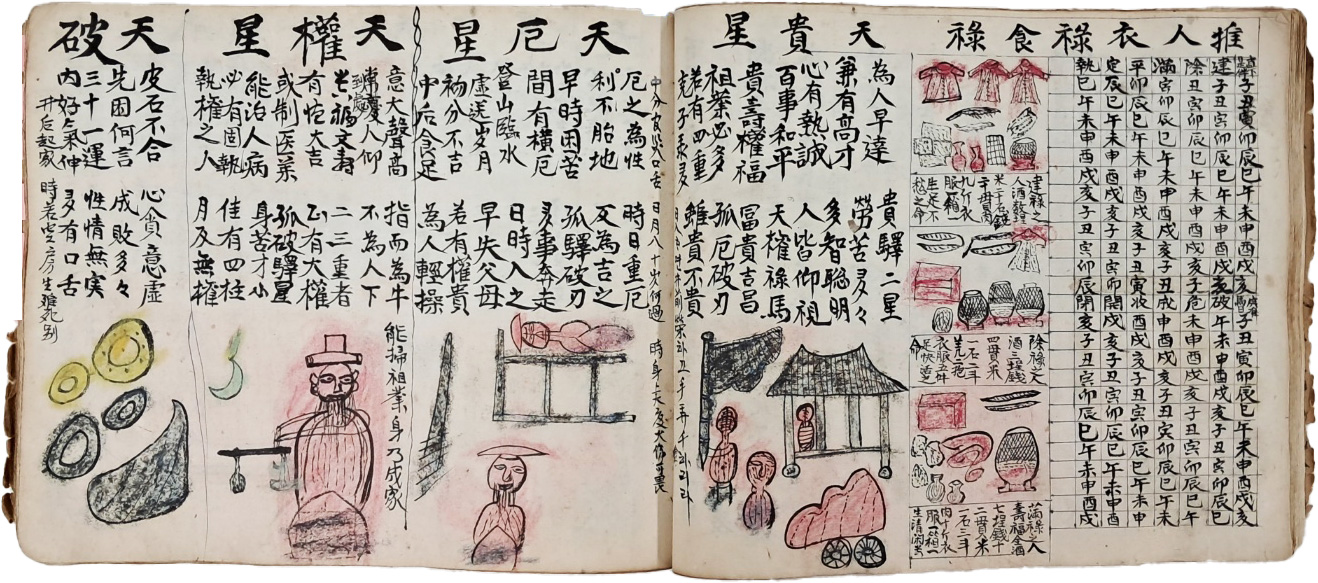 推人衣祿食祿
建子丑寅卯辰巳午未申酉戌亥破午未申酉戌亥子丑寅卯辰巳
除丑寅卯辰巳午未申酉戌亥子危未申酉戌亥子丑寅卯辰巳午
滿寅卯辰巳午未申酉戌亥子丑成申酉戌亥子丑寅卯辰巳午未
平卯辰巳午未申酉戌亥子丑寅收酉戌亥子丑寅卯辰巳午未申
定辰巳午未申酉戌亥子丑寅卯開戌亥子丑寅卯辰巳午未申酉
執巳午未申酉戌亥子丑寅卯辰閉亥子丑寅卯辰巳午未申酉戌
建祿之
九斤衣
服一箱
生足不
愁之命
除祿之
酒三埕錢
四貫米
一石二斗
衣服五件
足快楽
命
滿祿之人
壽福全酒
七埕錢十
二貫米
一石三斗
肉十斤衣
服一箱一
天貴星
為人早達
兼有高才
心有熱誠
百事和平
貴壽權福
祖業必多
若有四重
貴驛二星
勞苦多々
多智聰明
人皆仰視
天權祿馬
富貴吉昌
孤厄破刃
雖貴不貴
天厄星
厄之為性
利不胎地
早時困苦
間有橫厄
登山臨水
虛送岁月
初分不吉
中后食足
時日重厄
反為吉之
孤驛破刃
多事奔走
日時入之
早失父母
若有權貴
為人輕操
天權星
意大聲高
有忙大吉
或制医業
能治人病
必有固執
執權之人
指而為牛
不為人下
二三重者
正有大權
孤破驛星
身苦才小
佳有四柱
月及無權
能掃祖業身乃成家
天破
皮石不合
先困何言
三十一運
内好氣伸
井后起家
心貪意虛
成敗多々
性情無実
多有口舌